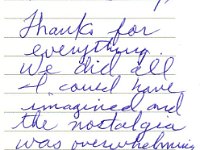 Thanks for
everything.
We did all
I could have
imagined and
the nostalgia
was overwhelming